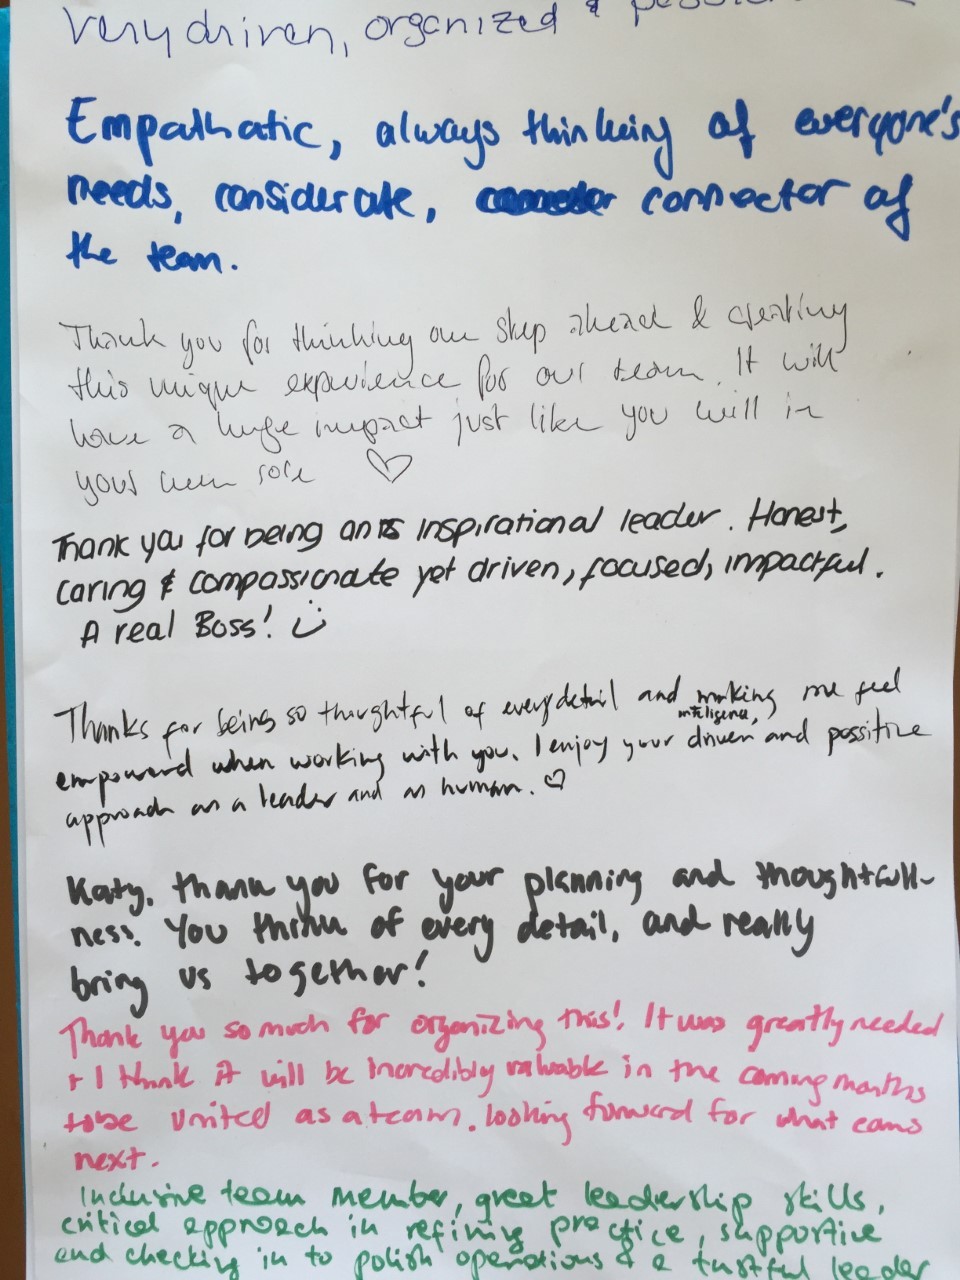 Very driven, organized &
Empathatic, always thinking of everyone's
needs, considerate, connector of
the team.
Thank you for thinking one step ahead & creating
this unique experience for our team. It will
have a huge impact just like you will in
your new role
Thank you for being an inspirational leader. Honest,
caring & compassionate yet driven, focused, impactful.
A real Boss!
Thanks for being so thoughtful of every detail and making me feel
intelligence,
empowered when working with you. I enjoy your driven and possitive
approach as a leader and as human.
Katy, thank you for your planning and thoughtfull-
ness. You think of every detail, and really
bring us together!
Thank you so much for organizing this! It was greatly needed
+ I think it will be incredibly valuable in the coming months
to be united as a team. Looking forward for what coms
next.
Inclusive team member, great leadership skills,
critical approach in refining practice, supportive
and checking in to polish operations & a trustful leader